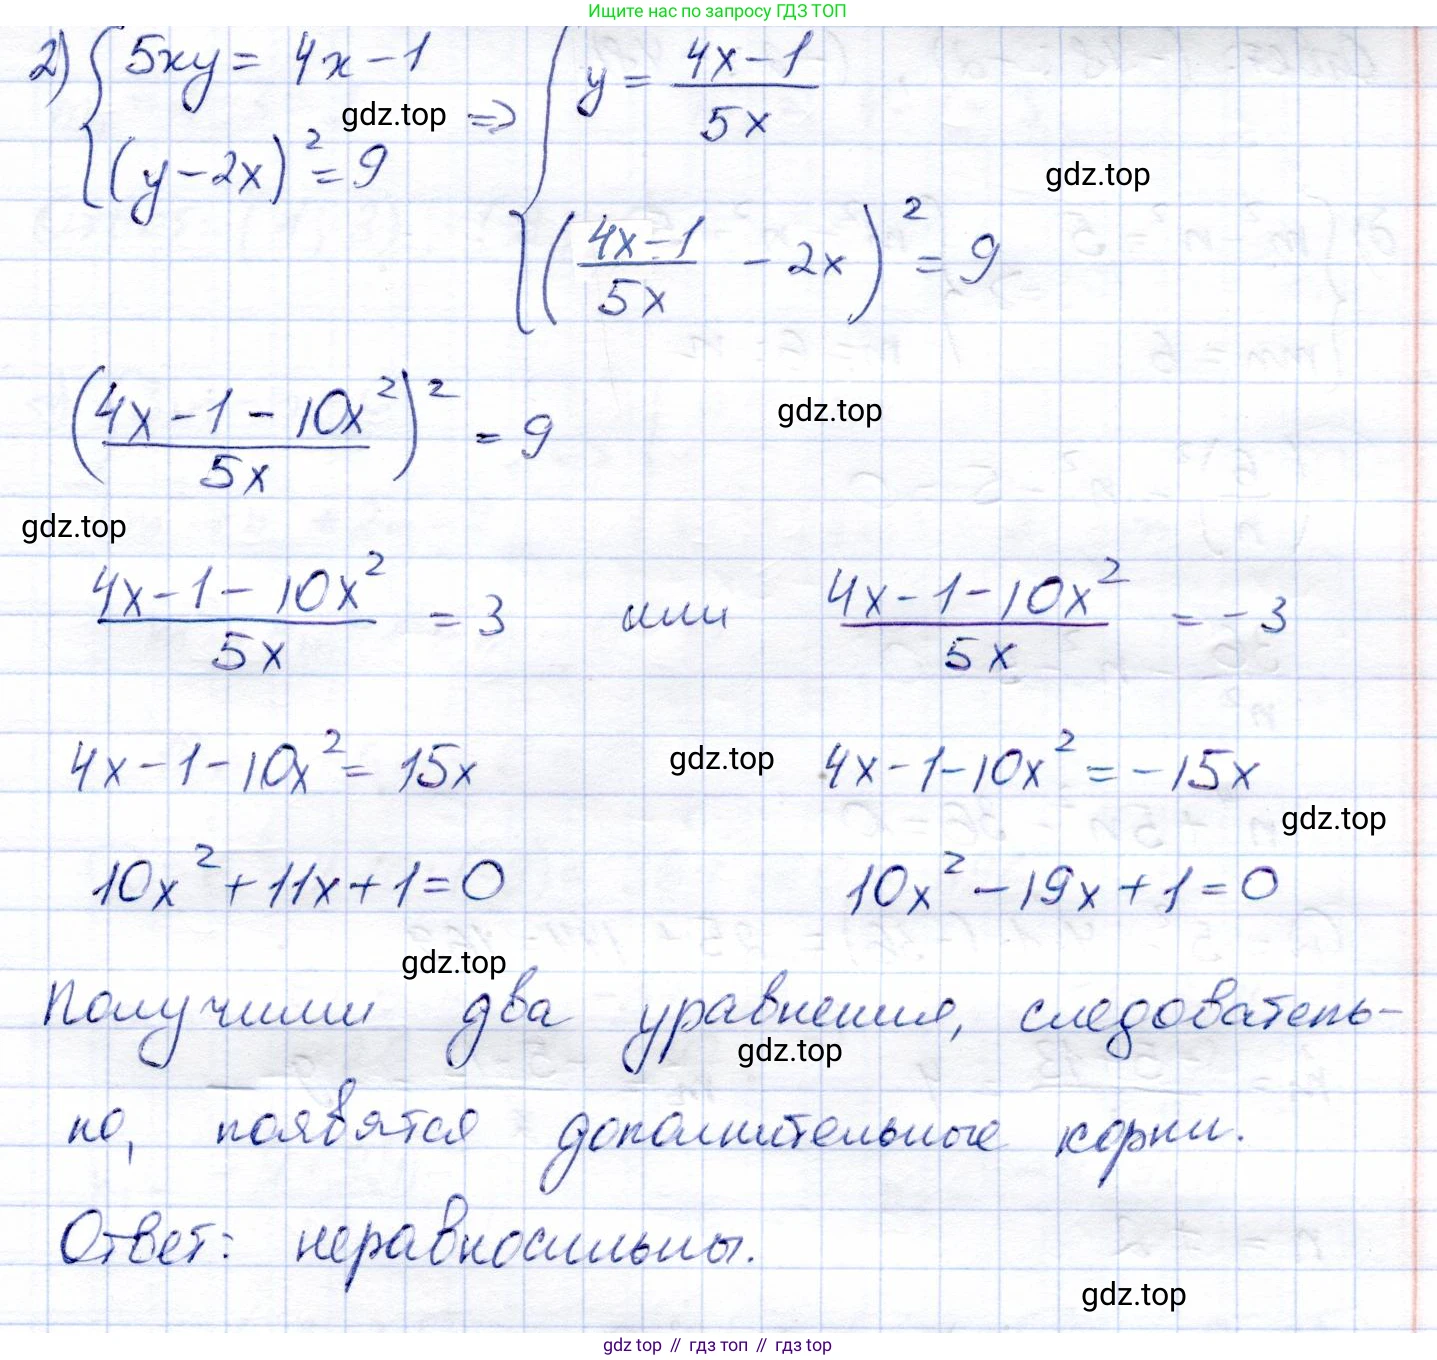 Ищите нас по запросу ГДЗ ТОП
2) { 5xy = 4x - 1 ⇒ { y = (4x - 1)/(5x)
gdz.top
(y - 2x)² = 9
gdz.top
((4x - 1)/(5x) - 2x)² = 9
((4x - 1 - 10x²)/(5x))² = 9
gdz.top
gdz.top
(4x - 1 - 10x²)/(5x) = 3 или (4x - 1 - 10x²)/(5x) = -3
4x - 1 - 10x² = 15x gdz.top 4x - 1 - 10x² = -15x
gdz.top
10x² + 11x + 1 = 0 10x² - 19x + 1 = 0
gdz.top
Получили два уравнения, следователь-
gdz.top
но, появятся дополнительные корни.
Ответ: неравносильны.
gdz.top
gdz top // гдз топ // гдз top